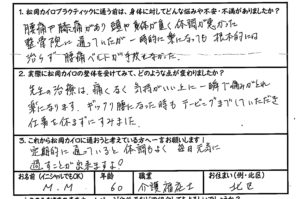 1. 松岡カイロプラクティックに通う前は、身体に対してどんな悩みや不安・不満がありましたか?
腰痛や膝痛があり頭や身体が重く体調が悪かった
整骨院に通っていたが一時的に楽になっても根本的には
治らず腰痛ベルトが手放せなかった。
2. 実際に松岡カイロの整体を受けてみて、どのような点が変わりましたか?
先生の治療は、痛くなく気持がいい上に一瞬で痛みがとれ
楽になります。ギックリ腰になった時もテーピングまでしていただき
仕事を休まずにすみました。
3. これから松岡カイロに通おうと考えている方へ一言お願いします!
定期的に通っていると体調もよく毎日元気に
過すことが出来ますよ!
お名前(イニシャルでもOK) 年齢 職業 お住まい(例・北区)
M.M. 60 介護福祉士 北区